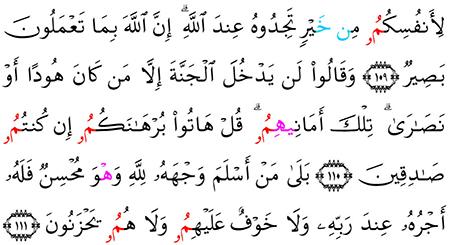 لِأَنفُسِكُمُۥ مِن خَيْرٖ تَجِدُوهُ عِندَ ٱللَّهِۗ إِنَّ ٱللَّهَ بِمَا تَعْمَلُونَ
بَصِيرٞ ١٠٩ وَقَالُواْ لَن يَدْخُلَ ٱلْجَنَّةَ إِلَّا مَن كَانَ هُودًا أَوْ
نَصَٰرَىٰۗ تِلْكَ أَمَانِيهِمُۥۗ قُلْ هَاتُواْ بُرْهَٰنَكُمُۥ إِن كُنتُمُۥ
صَٰدِقِينَ ١١٠ بَلَىٰ مَنْ أَسْلَمَ وَجْهَهُۥ لِلَّهِ وَهْوَ مُحْسِنٞ فَلَهُۥ
أَجْرُهُۥ عِندَ رَبِّهِۦ وَلَا خَوْفٌ عَلَيْهِمُۥ وَلَا هُمُۥ يَحْزَنُونَ ١١١